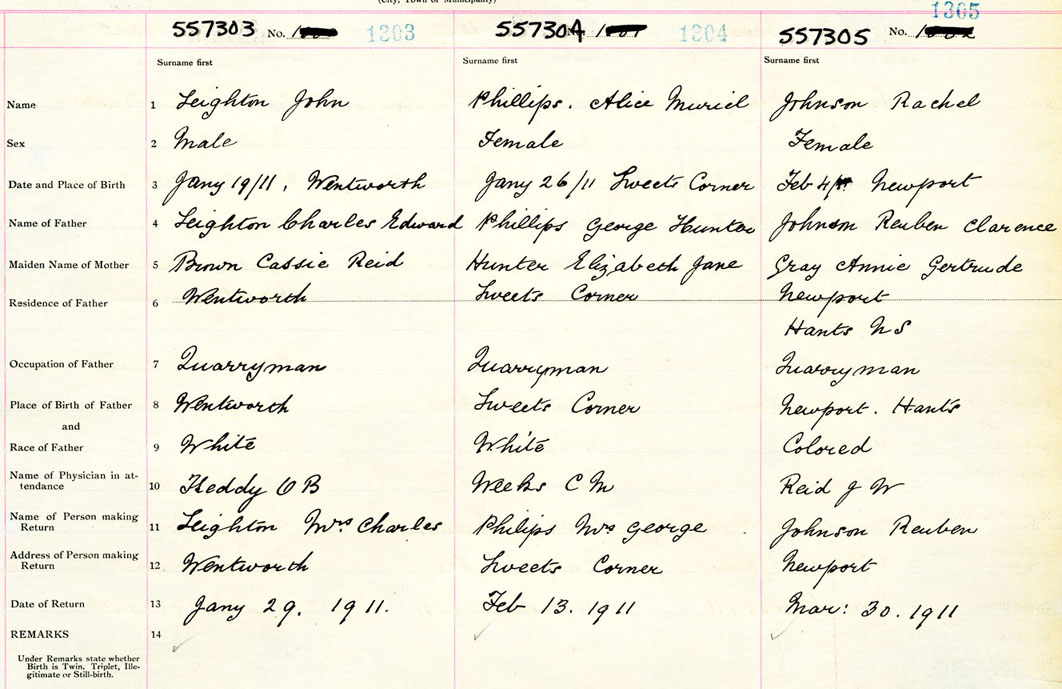 (City, Town or Municipality)
557303 No. 1303 557304 No. 1304 557305 No. 1305
Surname first Surname first Surname first
Name 1 Leighton John Phillips. Alice Muriel Johnson Rachel
Sex 2 Male Female Female
Date and Place of Birth 3 Jany 19/11, Wentworth Jany 26/11 Sweets Corner Feb 4/11 Newport
Name of Father 4 Leighton Charles Edward Phillips George Hunter Johnson Reuben Clarence
Maiden Name of Mother 5 Brown Cassie Reid Hunter Elizabeth Jane Gray Annie Gertrude
Residence of Father 6 Wentworth Sweets Corner Newport
Hants N S
Occupation of Father 7 Quarryman Quarryman Quarryman
Place of Birth of Father 8 Wentworth Sweets Corner Newport. Hants
and
Race of Father 9 White White Colored
Name of Physician in at-
tendance 10 Keddy O B Weeks C M Reid J W
Name of Person making
Return 11 Leighton Mrs Charles Philips Mrs George Johnson Reuben
Address of Person making
Return 12 Wentworth Sweets Corner Newport
Date of Return 13 Jany 29. 1911. Feb 13. 1911 Mar: 30. 1911
REMARKS 14
Under Remarks state whether
Birth is Twin, Triplet, Ille-
gitimate or Still-birth.